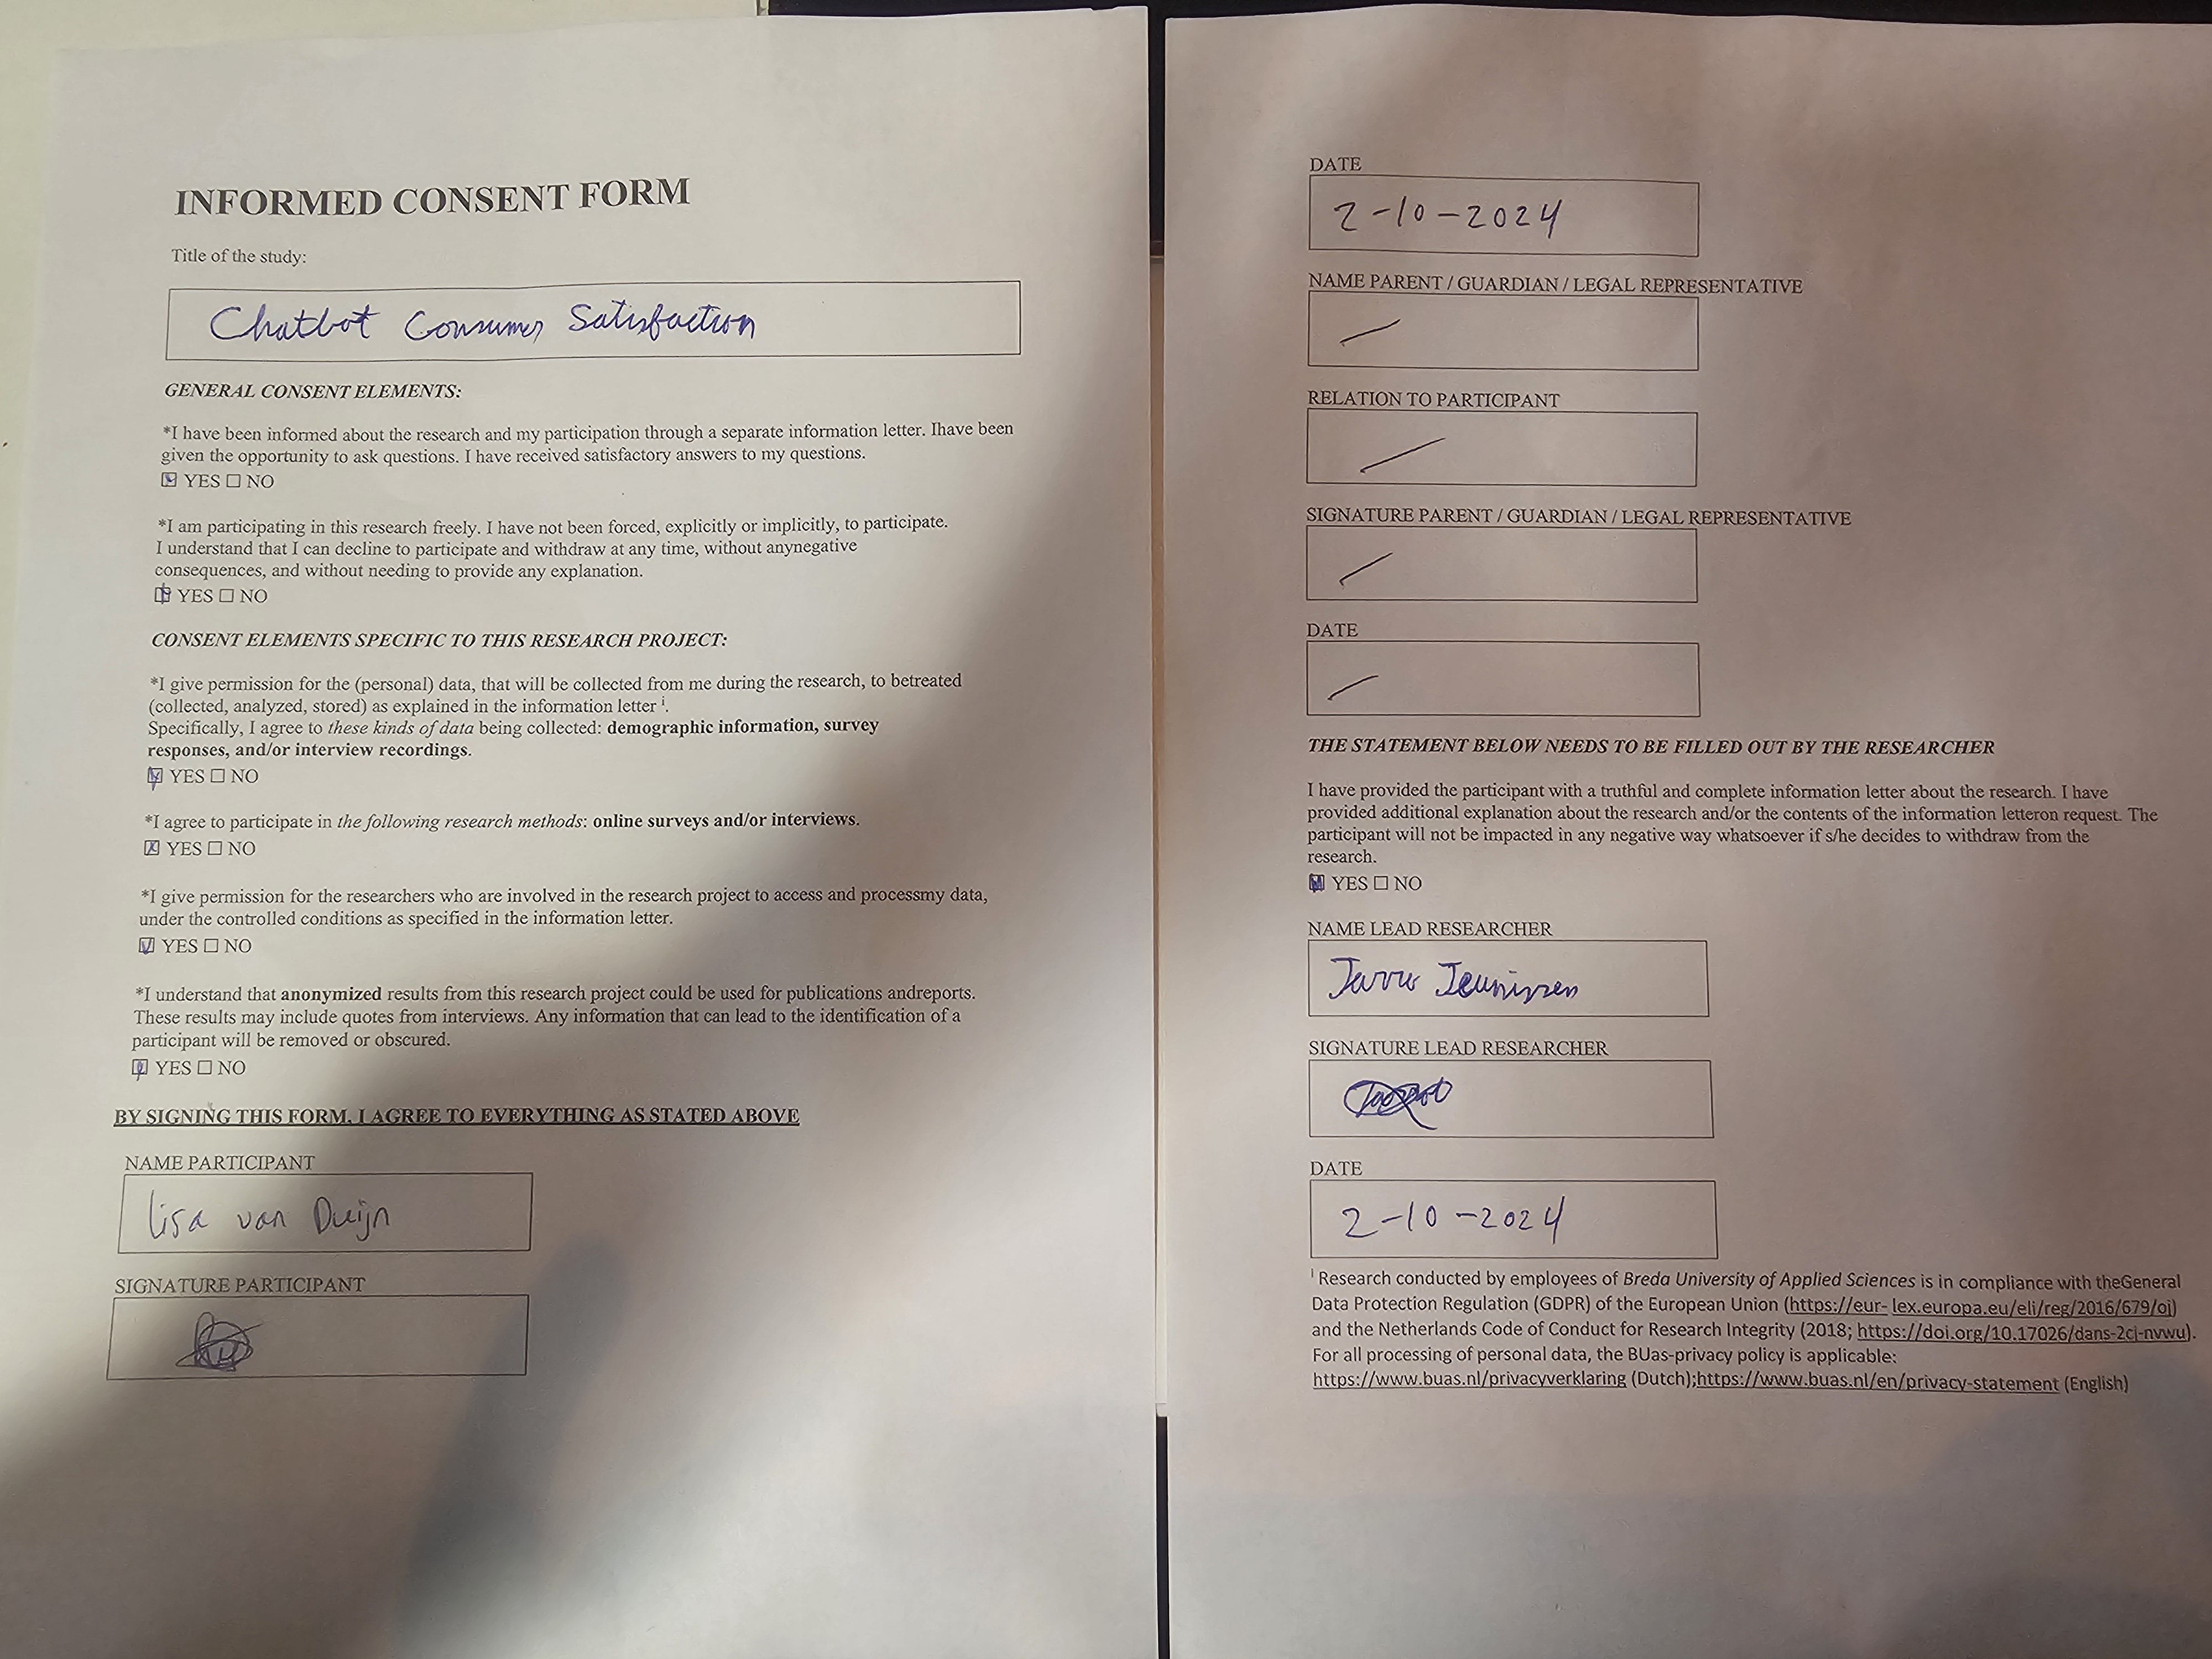 INFORMED CONSENT FORM
Title of the study:
Chatbot Consumer Satisfaction
GENERAL CONSENT ELEMENTS:
*I have been informed about the research and my participation through a separate information letter. Ihave been
given the opportunity to ask questions. I have received satisfactory answers to my questions.
☒ YES ☐ NO
*I am participating in this research freely. I have not been forced, explicitly or implicitly, to participate.
I understand that I can decline to participate and withdraw at any time, without anynegative
consequences, and without needing to provide any explanation.
☒ YES ☐ NO
CONSENT ELEMENTS SPECIFIC TO THIS RESEARCH PROJECT:
*I give permission for the (personal) data, that will be collected from me during the research, to betreated
(collected, analyzed, stored) as explained in the information letter i.
Specifically, I agree to these kinds of data being collected: demographic information, survey
responses, and/or interview recordings.
☒ YES ☐ NO
*I agree to participate in the following research methods: online surveys and/or interviews.
☒ YES ☐ NO
*I give permission for the researchers who are involved in the research project to access and processmy data,
under the controlled conditions as specified in the information letter.
☒ YES ☐ NO
*I understand that anonymized results from this research project could be used for publications andreports.
These results may include quotes from interviews. Any information that can lead to the identification of a
participant will be removed or obscured.
☒ YES ☐ NO
BY SIGNING THIS FORM, I AGREE TO EVERYTHING AS STATED ABOVE
NAME PARTICIPANT
Lisa van Duijn
SIGNATURE PARTICIPANT
DATE
2-10-2024
NAME PARENT / GUARDIAN / LEGAL REPRESENTATIVE
RELATION TO PARTICIPANT
SIGNATURE PARENT / GUARDIAN / LEGAL REPRESENTATIVE
DATE
THE STATEMENT BELOW NEEDS TO BE FILLED OUT BY THE RESEARCHER
I have provided the participant with a truthful and complete information letter about the research. I have
provided additional explanation about the research and/or the contents of the information letteron request. The
participant will not be impacted in any negative way whatsoever if s/he decides to withdraw from the
research.
☒ YES ☐ NO
NAME LEAD RESEARCHER
Teunissen
SIGNATURE LEAD RESEARCHER
DATE
2-10-2024
i Research conducted by employees of Breda University of Applied Sciences is in compliance with theGeneral
Data Protection Regulation (GDPR) of the European Union (https://eur- lex.europa.eu/eli/reg/2016/679/oj)
and the Netherlands Code of Conduct for Research Integrity (2018; https://doi.org/10.17026/dans-2cj-nvwu).
For all processing of personal data, the BUas-privacy policy is applicable:
https://www.buas.nl/privacyverklaring (Dutch);https://www.buas.nl/en/privacy-statement (English)